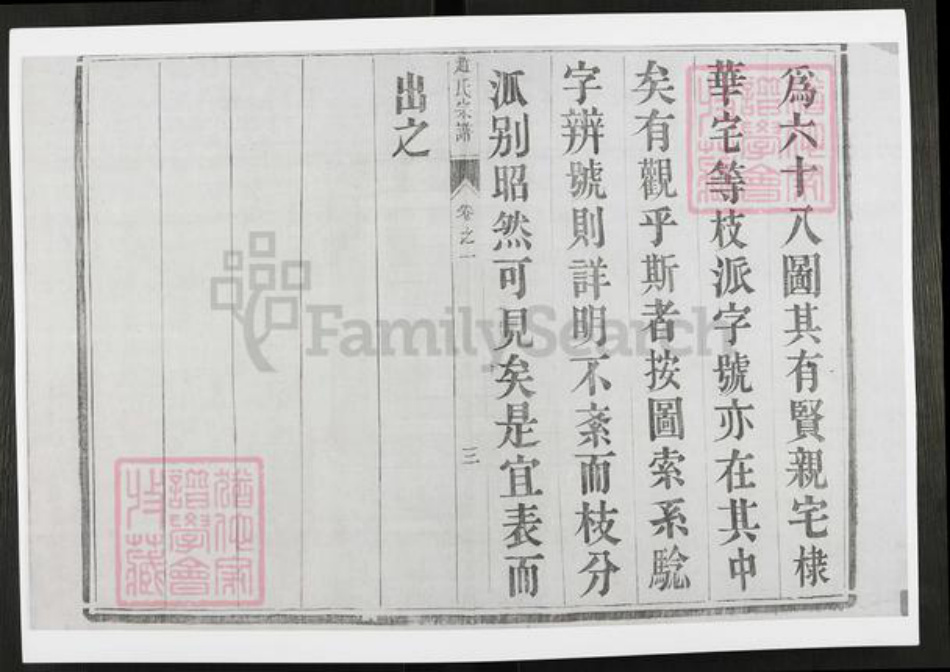 爲六十八圖其有賢親宅棣
華宅等枝派字號亦在其中
矣有觀乎斯者按圖索系騐
字辨號則詳明不紊而枝分
派别昭然可見矣是宜表而
趙氏宗譜 卷之一 三
出之
FamilySearch